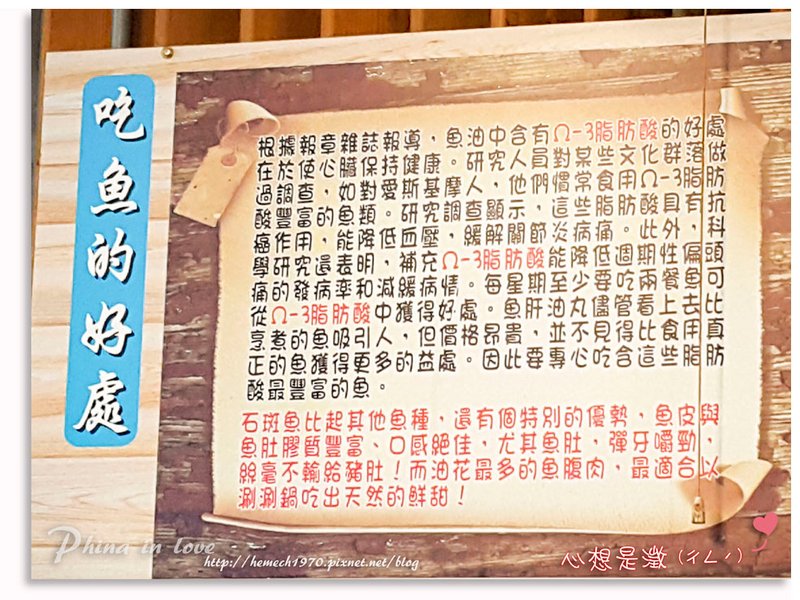 吃魚的好處
根據報章雜誌報導，魚油中含有Ω-3脂肪酸的好處
在於使心臟保持健康。研究人員對某些文化群落做
過調查，如對愛斯基摩人，他們慣常食用Ω-3脂肪
酸豐富的魚類。研究調查顯示，這些脂肪酸具有抗
癌作用，能降低血壓，緩解關節炎病痛。此外，科
學研究還表明，補充Ω-3脂肪酸能降低週期性偏頭
痛的發病率和減緩病情。每星期至少要吃兩餐魚可
從Ω-3脂肪酸中獲得好處。魚肝油丸儘管看上去比
烹煮的魚吸引人，但價格昂貴，並不見得比食用真
正的魚獲得更多的益處。因此要專心吃含這些脂肪
酸最豐富的魚。
石斑魚比起其他魚種，還有個特別的優勢，魚皮與
魚肚膠質豐富、口感絕佳，尤其魚肚，彈牙嚼勁，
絲毫不輸給豬肚！而油花最多的魚腹肉，最適合以
涮涮鍋吃出天然的鮮甜！
Phina in love
http://hemech1970.pixnet.net/blog
心想是澂（ㄔㄥˊ）